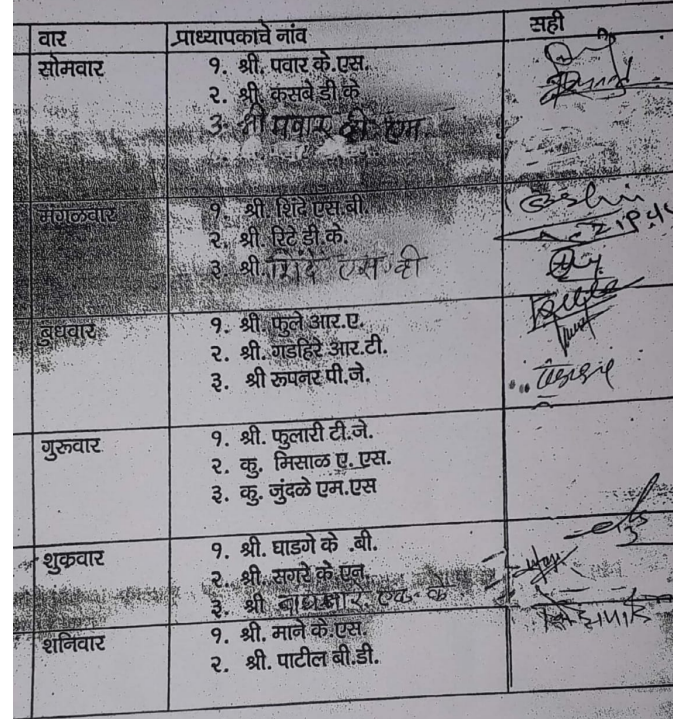 वार प्राध्यापकाचे नांव सही
सोमवार १. श्री. पवार के.एस.
२. श्री. कसबे डी.के
३. श्री पवार व्ही. एम
मंगळवार १. श्री. शिंदे एस.बी.
२. श्री. रिटे डी.के.
३. श्री. शिंदे एस. व्ही
बुधवार १. श्री. फुले आर.ए.
२. श्री. गडहिरे आर.टी.
३. श्री रूपनर पी.जे.
गुरूवार १. श्री. फुलारी टी.जे.
२. कु. मिसाळ ए. एस.
३. कु. जुंदळे एम.एस
शुक्रवार १. श्री. घाडगे के .बी.
२. श्री. सगरे के.एन.
३. श्री
शनिवार १. श्री. माने के.एस.
२. श्री. पाटील बी.डी.